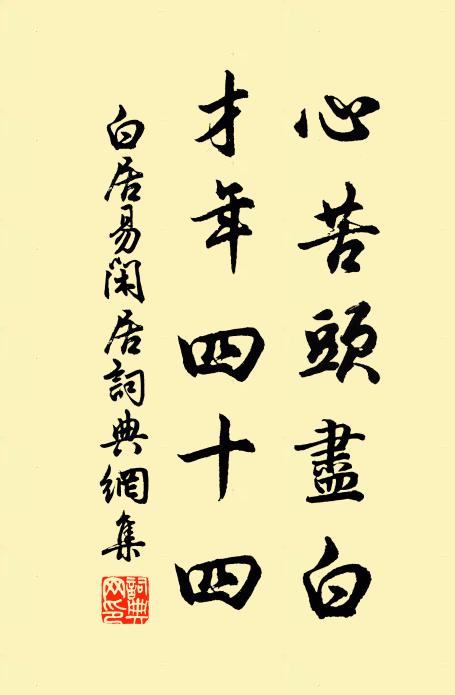 心苦頭盡白
才年四十四
白居易閑居詞典網集
詞典網印